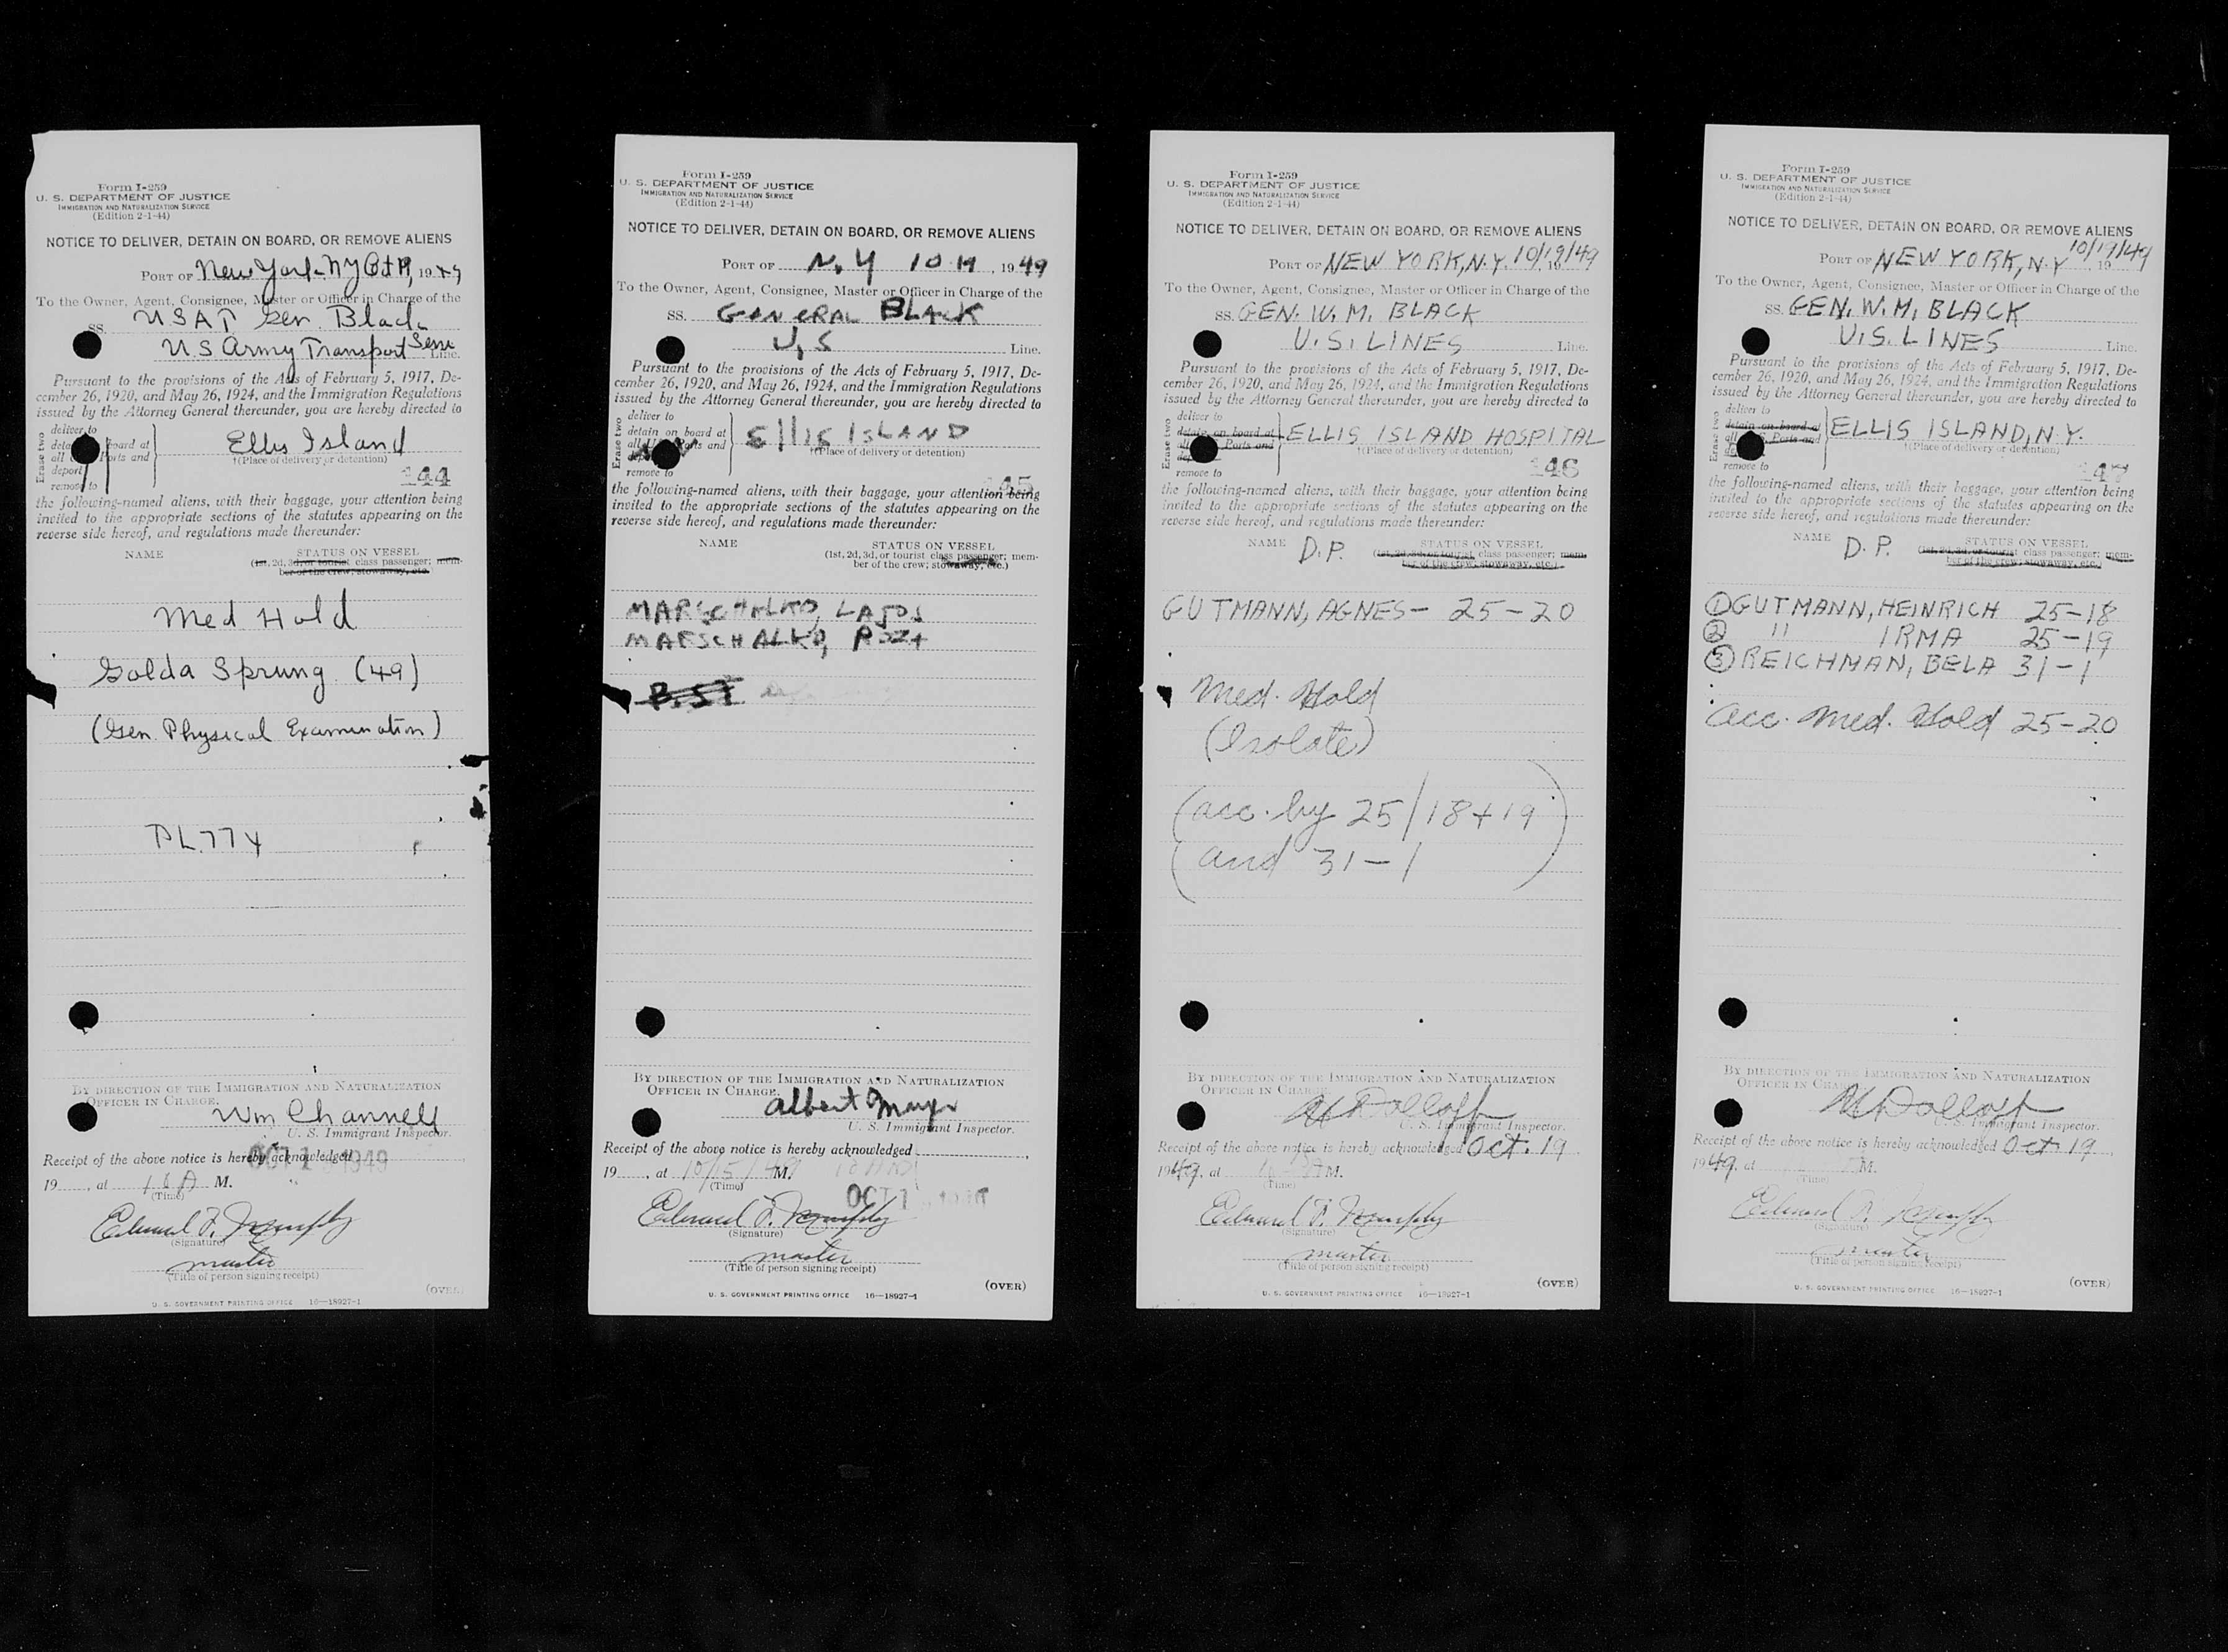 Form I-259
U. S. DEPARTMENT OF JUSTICE
IMMIGRATION AND NATURALIZATION SERVICE
(Edition 2-1-44)
NOTICE TO DELIVER, DETAIN ON BOARD, OR REMOVE ALIENS
PORT OF New York NY Oct 19, 1949
To the Owner, Agent, Consignee, Master or Officer in Charge of the
SS. USAT Gen. Black
US Army Transport Line.
Pursuant to the provisions of the Acts of February 5, 1917, De-
cember 26, 1920, and May 26, 1924, and the Immigration Regulations
issued by the Attorney General thereunder, you are hereby directed to
Erase two
deliver to
board at
all Ports and
deport
remove to
Ellis Island
†(Place of delivery or detention)
144
the following-named aliens, with their baggage, your attention being
invited to the appropriate sections of the statutes appearing on the
reverse side hereof, and regulations made thereunder:
NAME STATUS ON VESSEL
(1st, 2d, 3d, or tourist class passenger; mem-
ber of the crew; stowaway, etc.
Med Hold
Golda Sprung (49)
(Gen. Physical Examination)
PL.774
BY DIRECTION OF THE IMMIGRATION AND NATURALIZATION
OFFICER IN CHARGE.
Wm Channell
U. S. Immigrant Inspector.
Receipt of the above notice is hereby acknowledged
OCT 1 1949
19 , at M.
(Time)
Edward F. Murphy
(Signature)
master
(Title of person signing receipt)
(OVER)
U. S. GOVERNMENT PRINTING OFFICE 16—18927-1
Form I-259
U. S. DEPARTMENT OF JUSTICE
IMMIGRATION AND NATURALIZATION SERVICE
(Edition 2-1-44)
NOTICE TO DELIVER, DETAIN ON BOARD, OR REMOVE ALIENS
PORT OF N.Y 10 19, 1949
To the Owner, Agent, Consignee, Master or Officer in Charge of the
SS. GENERAL BLACK
U.S Line.
Pursuant to the provisions of the Acts of February 5, 1917, De-
cember 26, 1920, and May 26, 1924, and the Immigration Regulations
issued by the Attorney General thereunder, you are hereby directed to
Erase two
deliver to
detain on board at
all Ports and
remove to
Ellis ISLAND
†(Place of delivery or detention)
145
the following-named aliens, with their baggage, your attention being
invited to the appropriate sections of the statutes appearing on the
reverse side hereof, and regulations made thereunder:
NAME STATUS ON VESSEL
(1st, 2d, 3d, or tourist class passenger; mem-
ber of the crew; stowaway, etc.)
MARSCHALKO, LAJOS
MARSCHALKO,
B.S.I.
BY DIRECTION OF THE IMMIGRATION AND NATURALIZATION
OFFICER IN CHARGE.
Albert
U. S. Immigrant Inspector.
Receipt of the above notice is hereby acknowledged
19 , at M.
(Time)
OCT 1
Edward F. Murphy
(Signature)
master
(Title of person signing receipt)
(OVER)
U. S. GOVERNMENT PRINTING OFFICE 16—18927-1
Form I-259
U. S. DEPARTMENT OF JUSTICE
IMMIGRATION AND NATURALIZATION SERVICE
(Edition 2-1-44)
NOTICE TO DELIVER, DETAIN ON BOARD, OR REMOVE ALIENS
PORT OF NEW YORK, N.Y. 10/19/49
To the Owner, Agent, Consignee, Master or Officer in Charge of the
SS. GEN. W. M. BLACK
U.S. LINES Line.
Pursuant to the provisions of the Acts of February 5, 1917, De-
cember 26, 1920, and May 26, 1924, and the Immigration Regulations
issued by the Attorney General thereunder, you are hereby directed to
Erase two
deliver to
detain on board at
Ports and
remove to
ELLIS ISLAND HOSPITAL
†(Place of delivery or detention)
146
the following-named aliens, with their baggage, your attention being
invited to the appropriate sections of the statutes appearing on the
reverse side hereof, and regulations made thereunder:
NAME D.P. STATUS ON VESSEL
(1st, 2d, 3d, or tourist class passenger; mem-
ber of the crew; stowaway, etc.)
GUTMANN, AGNES - 25-20
Med. Hold
(Isolate)
(acc. by 25/18+19)
(and 31-1)
BY DIRECTION OF THE IMMIGRATION AND NATURALIZATION
OFFICER IN CHARGE
U. S. Immigrant Inspector.
Receipt of the above notice is hereby acknowledged Oct. 19
1949, at M.
(Time)
Edward F. Murphy
(Signature)
master
(Title of person signing receipt)
(OVER)
U. S. GOVERNMENT PRINTING OFFICE 16—18927-1
Form I-259
U. S. DEPARTMENT OF JUSTICE
IMMIGRATION AND NATURALIZATION SERVICE
(Edition 2-1-44)
NOTICE TO DELIVER, DETAIN ON BOARD, OR REMOVE ALIENS
PORT OF NEW YORK, N.Y 10/19/49
To the Owner, Agent, Consignee, Master or Officer in Charge of the
SS. GEN. W. M. BLACK
U.S. LINES Line.
Pursuant to the provisions of the Acts of February 5, 1917, De-
cember 26, 1920, and May 26, 1924, and the Immigration Regulations
issued by the Attorney General thereunder, you are hereby directed to
Erase two
deliver to
detain on board at
all Ports and
remove to
ELLIS ISLAND, N.Y.
†(Place of delivery or detention)
147
the following-named aliens, with their baggage, your attention being
invited to the appropriate sections of the statutes appearing on the
reverse side hereof, and regulations made thereunder:
NAME D.P. STATUS ON VESSEL
(1st, 2d, 3d, or tourist class passenger; mem-
ber of the crew; stowaway, etc.)
① GUTMANN, HEINRICH 25-18
② " IRMA 25-19
③ REICHMAN, BELA 31-1
acc. Med. Hold 25-20
BY DIRECTION OF THE IMMIGRATION AND NATURALIZATION
OFFICER IN CHARGE
U. S. Immigrant Inspector.
Receipt of the above notice is hereby acknowledged Oct. 19
1949, at M.
(Time)
Edward F. Murphy
(Signature)
master
(Title of person signing receipt)
(OVER)
U. S. GOVERNMENT PRINTING OFFICE 16—18927-1